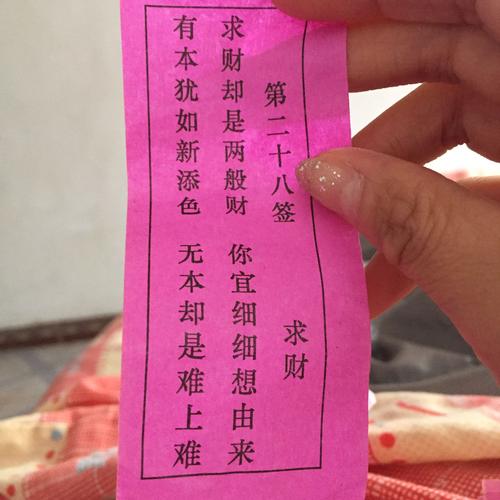 第二十八签 求财
求财却是两般财 你宜细细想由来
有本犹如新添色 无本却是难上难